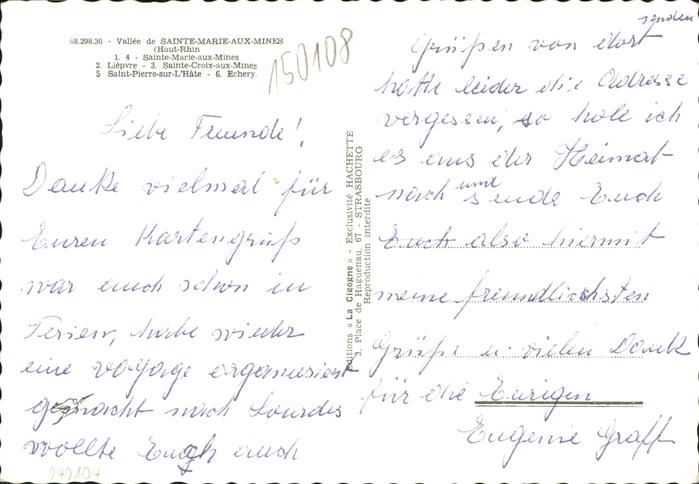 68.298.30 - Vallée de SAINTE-MARIE-AUX-MINES
(Haut-Rhin
1. 4 - Sainte-Marie-aux-Mines
2. Lièpvre - 3. Sainte-Croix-aux-Mines
5 Saint-Pierre-sur-L'Hâte - 6. Echery.
150108
Liebe Freunde!
Danke vielmal für
Euren Kartengruß
war auch schon in
Ferien, habe wieder
eine voyage organisiert
gemacht nach Lourdes
wollte Euch auch
070107
Editions « La Cigogne » - Exclusivité HACHETTE
3, Place de Haguenau, 67 - STRASBOURG
Reproduction interdite
senden
Grüßen von dort
hatte leider die Adresse
vergessen, so hole ich
es aus der Heimat
nach und sende Euch
Euch also hiermit
meine freundlichsten
Grüße u vielen Dank
für die Eurigen
Eugenie Graff